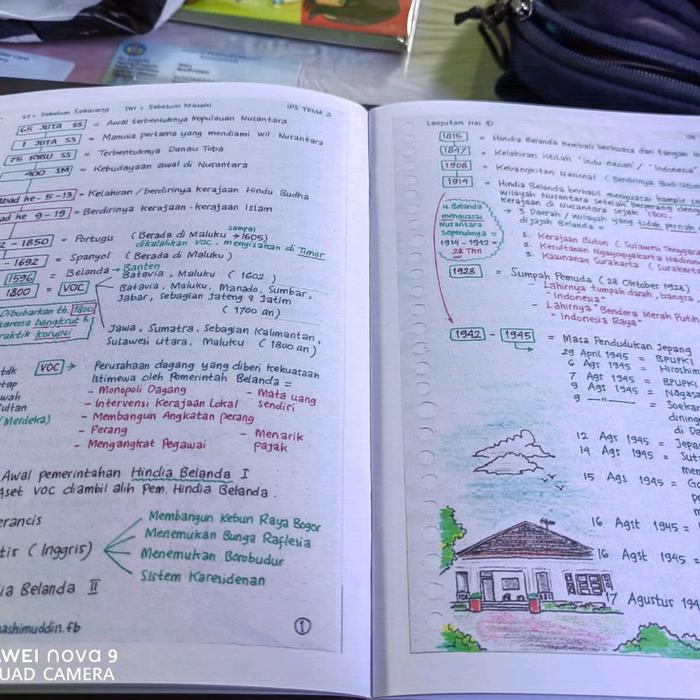 SS = Sebelum Sekarang SM = Sebelum Masehi IPS TEMA 3
65 JUTA SS = Awal terbentuknya kepulauan Nusantara
1 JUTA SS = Manusia pertama yang mendiami wil. Nusantara
75 RIBU SS = Terbentuknya Danau Toba
400 SM = Kebudayaan awal di Nusantara
abad ke - 5-13 = Kelahiran / berdirinya kerajaan Hindu Budha
bad ke 9 - 19 = Berdirinya Kerajaan - kerajaan Islam
2 - 1850 = Portugis (Berada di Maluku sampai → 1605)
dikalahkan VOC, menyisakan di Timor
- 1692 = Spanyol (Berada di Maluku)
1596 = Belanda → Banten
1800 = VOC
Batavia, Maluku (1602)
Batavia, Maluku, Manado, Sumbar,
Jabar, Sebagian Jateng & Jatim
(1700 an)
Jawa, Sumatra, Sebagian Kalimantan,
Sulawesi utara, Maluku (1800 an)
Dibubarkan th. 1800
karena bangkrut &
praktik korupsi
tdk
tap
wah
ultan
(Merdeka)
VOC → Perusahaan dagang yang diberi kekuasaan
Istimewa oleh Pemerintah Belanda =
- Monopoli Dagang - Mata uang
- Intervensi Kerajaan Lokal sendiri
- Membangun Angkatan perang
- Perang - Menarik
- Mengangkat Pegawai pajak
Awal pemerintahan Hindia Belanda I
Aset VOC diambil alih Pem. Hindia Belanda.
erancis
tis (Inggris)
Membangun Kebun Raya Bogor
Menemukan Bunga Raflesia
Menemukan Borobudur
Sistem Karesidenan
ia Belanda II
ashimuddin.fb
1
Lanjutan Hal 1
1815 = Hindia Belanda kembali berkuasa dari tangan
1847 = Kelahiran istilah "Indu-nesian" / "Indonesia"
1908 = Kebangkitan Nasional (Berdirinya Budi
1914 = Hindia Belanda berhasil menguasai hampir
wilayah Nusantara setelah berperang
kerajaan di Nusantara sejak 1800.
→ 3 Daerah / Wilayah yang tidak pernah
dijajah Belanda =
1. Kerajaan Buton (Sulawesi Tenggara
2. Kesultanan Ngayogyakarta Hadinin
3. Kasunanan Surakarta (Surakar
H. Belanda
menguasai
Nusantara
sepenuhnya =
1914 - 1942 =
28 Thn
1928 = Sumpah Pemuda (28 Oktober 1928)
- Lahirnya tumpah darah, bangsa
"Indonesia"
- Lahirnya Bendera Merah Putih
"Indonesia Raya"
1942 - 1945 = Masa Pendudukan Jepang
29 April 1945 = BPUPKI
6 Ags 1945 = Hiroshim
7 Ags 1945 = BPUPKI
9 Ags 1945 = Nagasa
9 —„— = Soekar
dining
di Da
12 Ags 1945 = Jepa
14 Ags 1945 = Sut
men
15 Ags 1945 = Go
16 Agst 1945 =
16 Agst 1945 =
17 Agustus 194
AWEI nova 9
UAD CAMERA